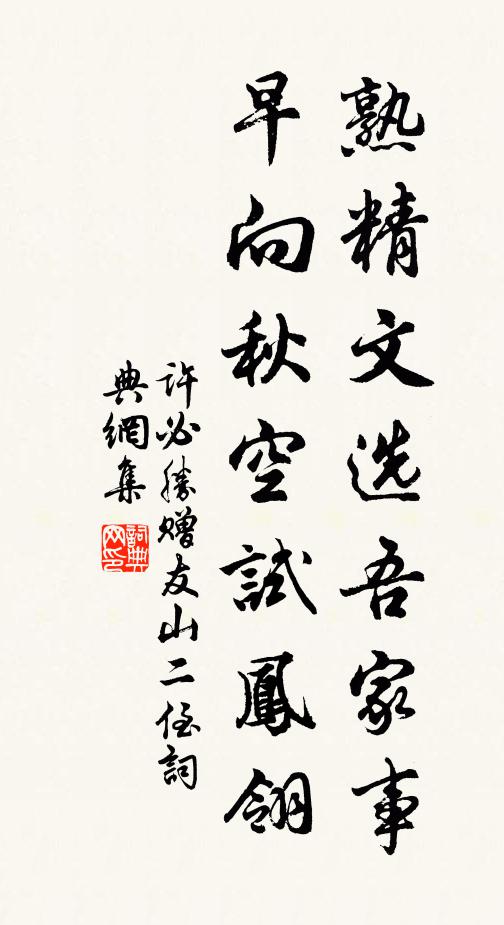 熟精文选吾家事
早向秋空試鳳翎
許必勝赠友山二侄詞
典網集
詞典网印